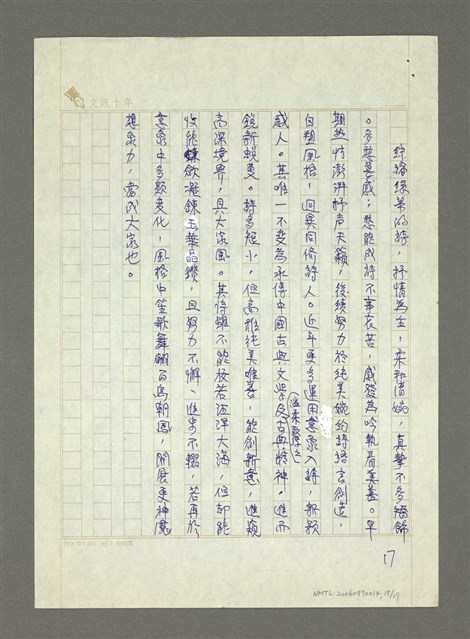 綜論綠蒂的詩，抒情為主，柔和清婉，真摯不多繪飾
。多愁善感；愁能成詩不事哀苦，感發為吟執着美善。早
期熱情澎湃抒聲天籟，後續努力於純美婉約詩語言創造，
自塑風格，迥異同儕詩人。近年更多運用意象入詩，新穎
感人。其唯一不變為承傳中國古典文學及古典精神。進而
鏡新蛻變。詩多短小，但高雅純美雋著，能創新意，進窺
高深境界，具大家風。其詩雖不能波若汪洋大海，但却能
收能歛凝鍊玉華晶鑽，且努力不懈、進步不輟，若再於
意象中多顯變化，風格中笙歌舞翩百鳥朝鳳，開展更神魔
想象力，當成大家也。
17
文訊十年
NMTL 20060990014, 17/17